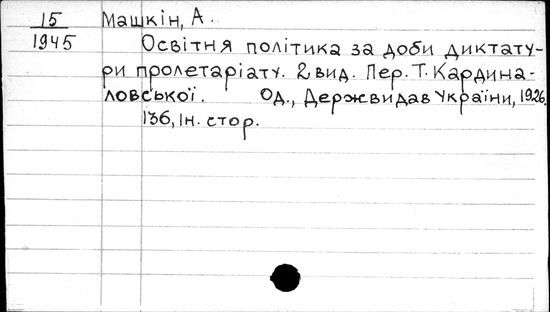 15 Машкін, А.
1945 Освітня політика за доби диктату-
ри пролетаріату. 2 вид. Пер. Т. Кардина-
ловської. Од., Держвидав України, 1926,
136, Iн. стор.